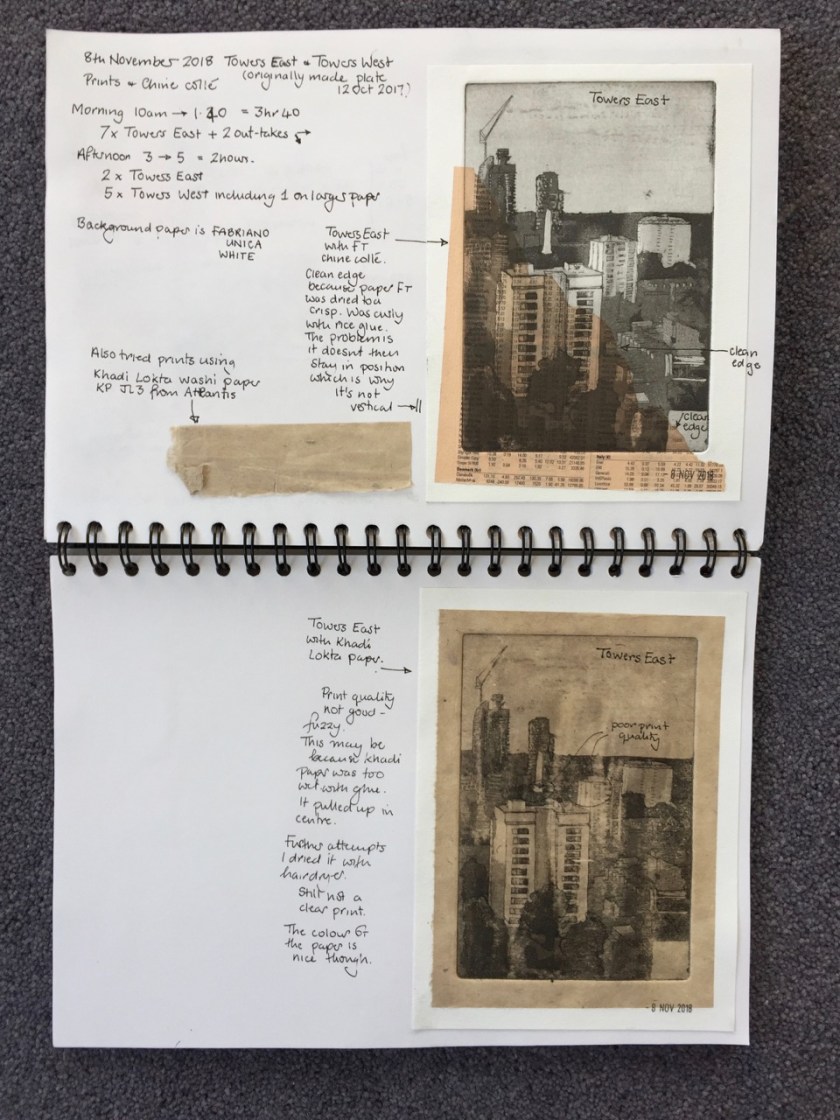 8th November 2018 Towers East & Towers West
Prints & Chine collé (originally made plate
12 Oct 2017)
Morning 10am → 1.40 = 3hr 40
7x Towers East + 2 out-takes
Afternoon 3 → 5 = 2hours.
2 x Towers East
5 x Towers West including 1 on larger paper
Background paper is FABRIANO
UNICA
WHITE
Towers East
with FT
chine collé.
Clean edge
because paper FT
was dried to a
crisp. Was curly
with rice glue.
The problem is
it doesnt then
stay in position
which is why
it's not
vertical →
Also tried prints using
Khadi Lokta washi paper
KP JL3 from Atlantis
Towers East
clean
edge
clean
edge
8 NOV 2018
Towers East
with Khadi
Lokta paper.
Print quality
not good –
fuzzy.
This may be
because khadi
paper was too
wet with glue.
It pulled up in
centre.
Further attempts
I dried it with
hairdryer.
Still not a
clear print.
The colour of
the paper is
nice though.
Towers East
poor print
quality
- 8 NOV 2018